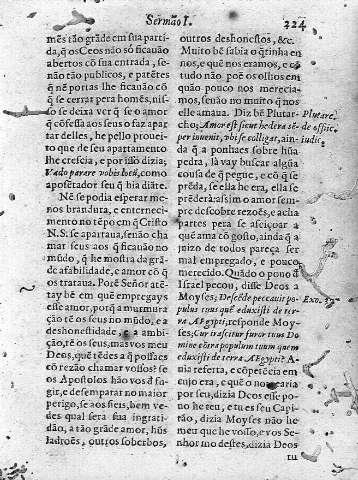 Sermão I.
224
mẽs tão grãde em sua parti-
da, q̃ os Ceos não só ficauão
abertos cõ sua entrada, se-
não tão publicos, e patẽtes
q̃ nẽ portas lhe ficauão cõ
q̃ se cerrar pera homẽs, nis-
so se deixa ver q̃ se o amor
q̃ cõfessa aos seus o faz apar
tar delles, he pello prouei-
to que de seu apartamento
lhe crescia, e por isso dizia;
Vado parare vobis locũ, como
aposẽtador seu q̃ hia diãte.
Nẽ se podia esperar me-
nos brandura, e enterneci-
mento no tẽpo em q̃ Cristo
N. S. se aparta, senão cha
mar seus aos q̃ ficauão no
mũdo, q̃ he mostra da grã-
de afabilidade, e amor cõ q̃
os trataua. Porẽ Señor atẽ-
tay bẽ em quẽ empregays
esse amor, porq̃ a murmura
ção tẽ os seus no mũdo, e a
deshonestidade, e a ambi-
ção, tẽ os seus, mas vos meu
Deos, quẽ tẽdes a q̃ possaes
cõ rezão chamar vossos? se
os Apostolos hão vos d̃ fu-
gir, e desemparar no maior
perigo, se aos fieis, bem ve-
des qual sera sua ingrati-
dão, a tão grãde amor, hũs
ladroẽs, outros soberbos,
outros deshonestos, &c.
Muito bẽ sabia o q̃ tinha en
nos, e quẽ nos eramos, e cõ
tudo não poẽ os olhos em
quão pouco nos mereciamos,
senão no muito q̃ nos
elle amaua. Diz bẽ Plutar-
cho; Amor est sicut hedera se-
per iuuenit, vbi se colliget, ain-
da q̃ a ponhaes sobre hũa
pedra, là vay buscar algũa
cousa de q̃ pegue, e cõ q̃ se
prẽda, se ella he era, ella se
prẽderá: assim o amor sem-
pre descobre rezoẽs, e acha
partes pera se afeiçoar a
quẽ ama cõ gosto, ainda q̃ a
juizo de todos pareça ser
mal empregado, e pouco
merecido. Quãdo o pouo d̃
Israel pecou, disse Deos a
Moyses; Descẽde peccauit po-
pulus tuus quẽ eduxisti de ter-
ra Ægypti, responde Moy-
ses; Cur irascitur furor tuus Do
mine cõtra populum tuum quem
eduxisti de terra Ægypti? A
nia referta, e cõpetẽcia em
cujo era, e quẽ o nomearia
por seu, dizia Deos esse po-
uo he teu, e tu es seu Capi-
tão, dizia Moyses não he
meu que he vosso, e vos Se-
nhor mo destes, dizia Deos
tu
Plutarc.
de offic.
iudic.
Exo. 32.